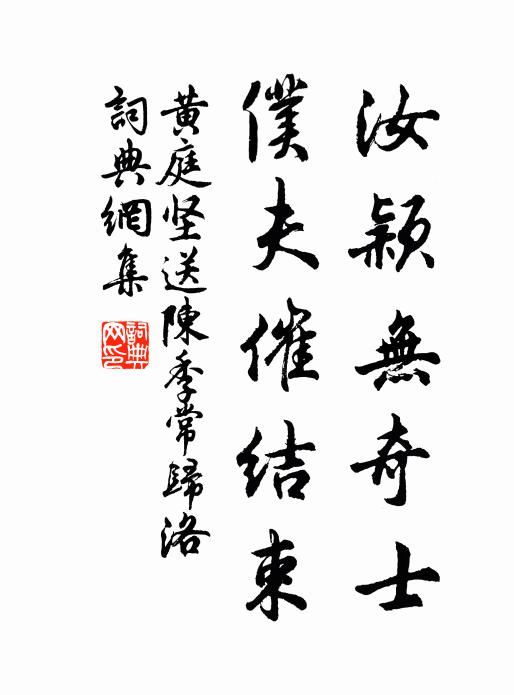 汝颍無奇士
僕夫催結束
黄庭坚送陳季常歸洛
詞典網集
詞典網印